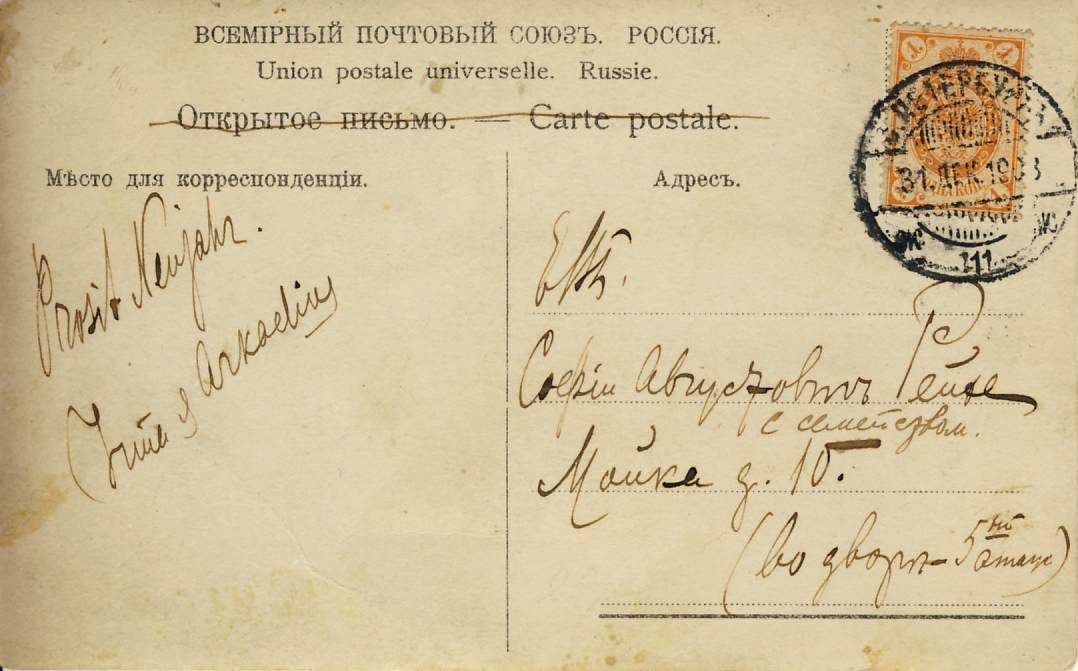 ВСЕМІРНЫЙ ПОЧТОВЫЙ СОЮЗЪ. РОССІЯ.
Union postale universelle. Russie.
Открытое письмо. — Carte postale.
Мѣсто для корреспонденціи.
Адресъ.
С.ПЕТЕРБУРГЪ
31.ДЕК.1903
111
Prosit Neujahr.
Arkadius
Софіи Августовнѣ Рейне
с семейством.
Мойка д. 10.
(во дворѣ – 5ый этаж)